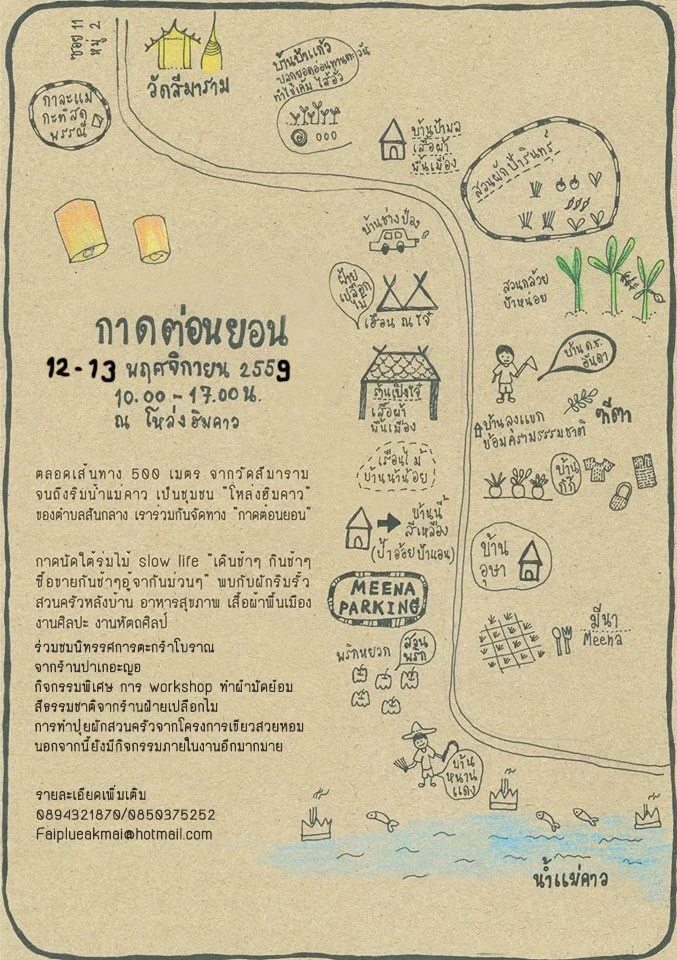 ซอย 11
หมู่ 2
วัดสีมาราม
กาละแม
กะทิสด
พรรณี
บ้านป้าแก้ว
ปลูกยอดอ่อนทานตะวัน
ทำไข่เค็ม ไส้อั่ว
บ้านป้ามล
เสื้อผ้า
พื้นเมือง
สวนผักป้ารินทร์
บ้านช่างป๋อง
สวนกล้วย
ป้าหน่อย
ฝ้าย
เปลือก
ไม้
เฮือน ณ ใจ๋
กาดต่อนยอน
12-13 พฤศจิกายน 2559
10.00 - 17.00 น.
ณ โหล่งฮิมคาว
บ้าน ด.ช.
ฮันดา
เสื้อผ้า
พื้นเมือง
บ้านลุงแขก
ย้อมครามธรรมชาติ
ฑีตา
เรือนไม้
บ้านน้าน้อย
บ้าน
กุ๊ก
ตลอดเส้นทาง 500 เมตร จากวัดสีมาราม
จนถึงริมน้ำแม่คาว เป็นชุมชน "โหล่งฮิมคาว"
ของตำบลสันกลาง เราร่วมกันจัดทาง "กาดต่อนยอน"
บ้านนี้
สีเหลือง
(ป้าอ้อย ป้าแอน)
บ้าน
อุษา
กาดนัดใต้ร่มไม้ slow life "เดินช้าๆ กินช้าๆ
ซื้อขายกันช้าๆอู้จากันม่วนๆ" พบกับผักริมรั้ว
สวนครัวหลังบ้าน อาหารสุขภาพ เสื้อผ้าพื้นเมือง
งานศิลปะ งานหัตถศิลป์
MEENA
PARKING
มีนา
Meena
ร่วมชมนิทรรศการตะกร้าโบราณ
จากร้านปาเกอะญอ
กิจกรรมพิเศษ การ workshop ทำผ้ามัดย้อม
สีธรรมชาติจากร้านฝ้ายเปลือกไม
การทำปุ๋ยผักสวนครัวจากโครงการเขียวสวยหอม
นอกจากนี้ยังมีกิจกรรมภายในงานอีกมากมาย
พริกหยวก
สวน
พริก
บ้าน
หนาน
แดง
รายละเอียดเพิ่มเติม
0894321870/0850375252
Faiplueakmai@hotmail.com
น้ำแม่คาว